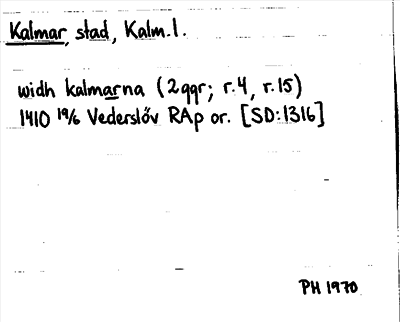 Kalmar, stad, Kalm.l.
widh kalmarna (2 ggr; r.4, r.15)
1410 19/6 Vederslöv RAp or. [SD:1316]
PH 1970